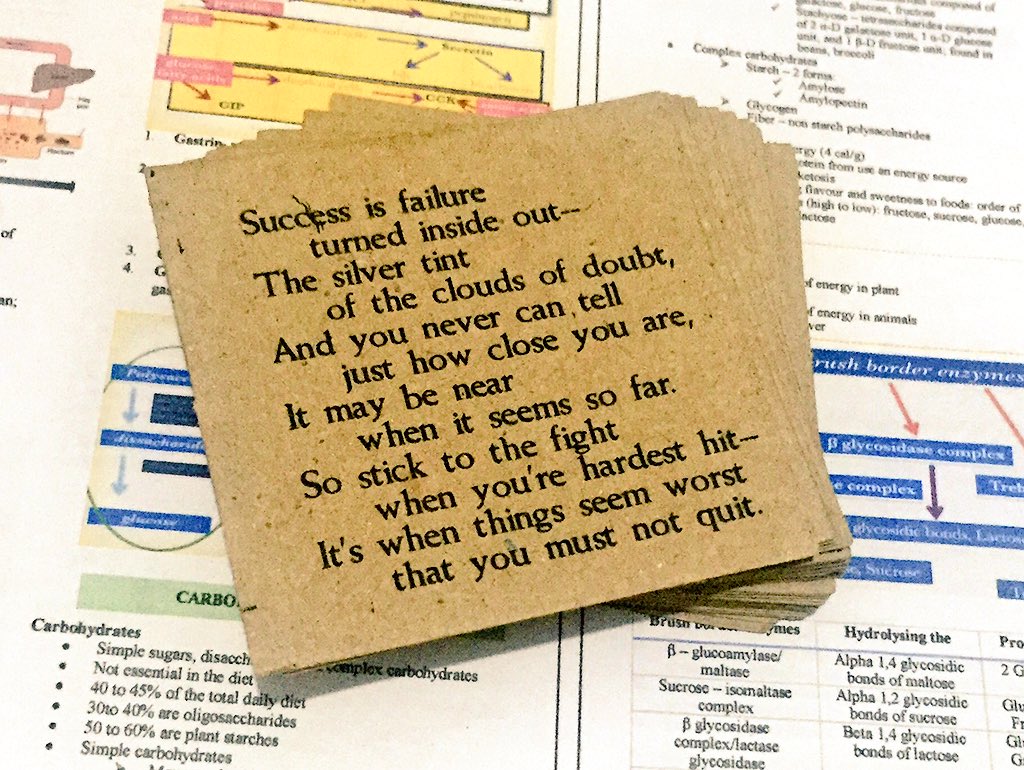 Secretin
GIP
CCK
Gastrin
galactose, glucose, fructose
Stachyose – tetrasaccharides composed
of 2 α-D galactose unit, 1 α-D glucose
unit, and 1 β-D fructose unit, found in
beans, broccoli
Complex carbohydrates
Starch – 2 forms
Amylose
Amylopectin
Glycogen
Fiber – non starch polysaccharides
(4 cal/g)
from use an energy source
flavour and sweetness to foods: order of
(high to low): fructose, sucrose, glucose,
of energy in plant
of energy in animals
Success is failure
turned inside out--
The silver tint
of the clouds of doubt,
And you never can tell
just how close you are,
It may be near
when it seems so far.
So stick to the fight
when you're hardest hit--
It's when things seem worst
that you must not quit.
1.
2.
3.
4.
of
glucose
border enzymes
β glycosidase complex
complex
glycosidic bonds,
Sucrose
Carbohydrates
Simple sugars,
Not essential in the diet
40 to 45% of the total daily diet
30to 40% are oligosaccharides
50 to 60% are plant starches
Simple carbohydrates
complex carbohydrates
Brush
Hydrolysing the
β – glucoamylase/
maltase
Alpha 1,4 glycosidic
bonds of maltose
2 G
Sucrose – isomaltase
complex
Alpha 1,2 glycosidic
bonds of sucrose
β glycosidase
complex/lactase
glycosidase
Beta 1,4 glycosidic
bonds of lactose